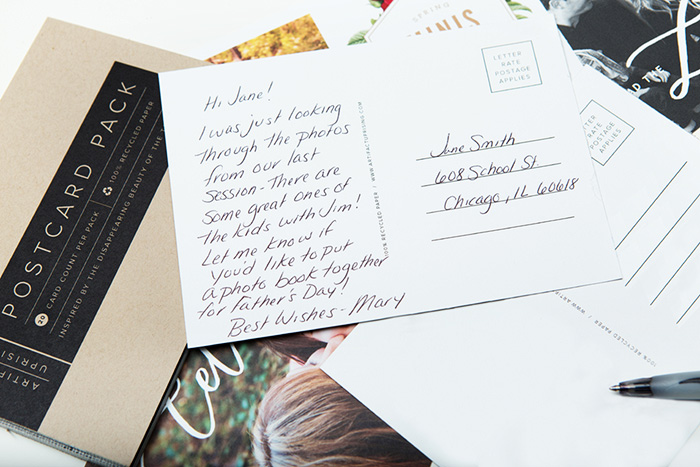 POSTCARD PACK
20 CARD COUNT PER PACK
100% RECYCLED PAPER
INSPIRED BY THE DISAPPEARING BEAUTY OF THE
ARTIF
UPRISI
SPRING
Hi Jane!
I was just looking
through the photos
from our last
session - There are
some great ones of
the kids with Jim!
Let me know if
you'd like to put
a photo book together
for Father's Day!
Best Wishes - Mary
100% RECYCLED PAPER / WWW.ARTIFACTUPRISING.COM
LETTER
RATE
POSTAGE
APPLIES
Jane Smith
608 School St
Chicago, IL 60618
LETTER
RATE
POSTAGE
APPLIES
100% RECYCLED PAPER / WWW.ARTI